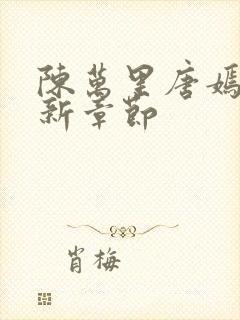 陳萬里唐嫣
新章節
肖梅